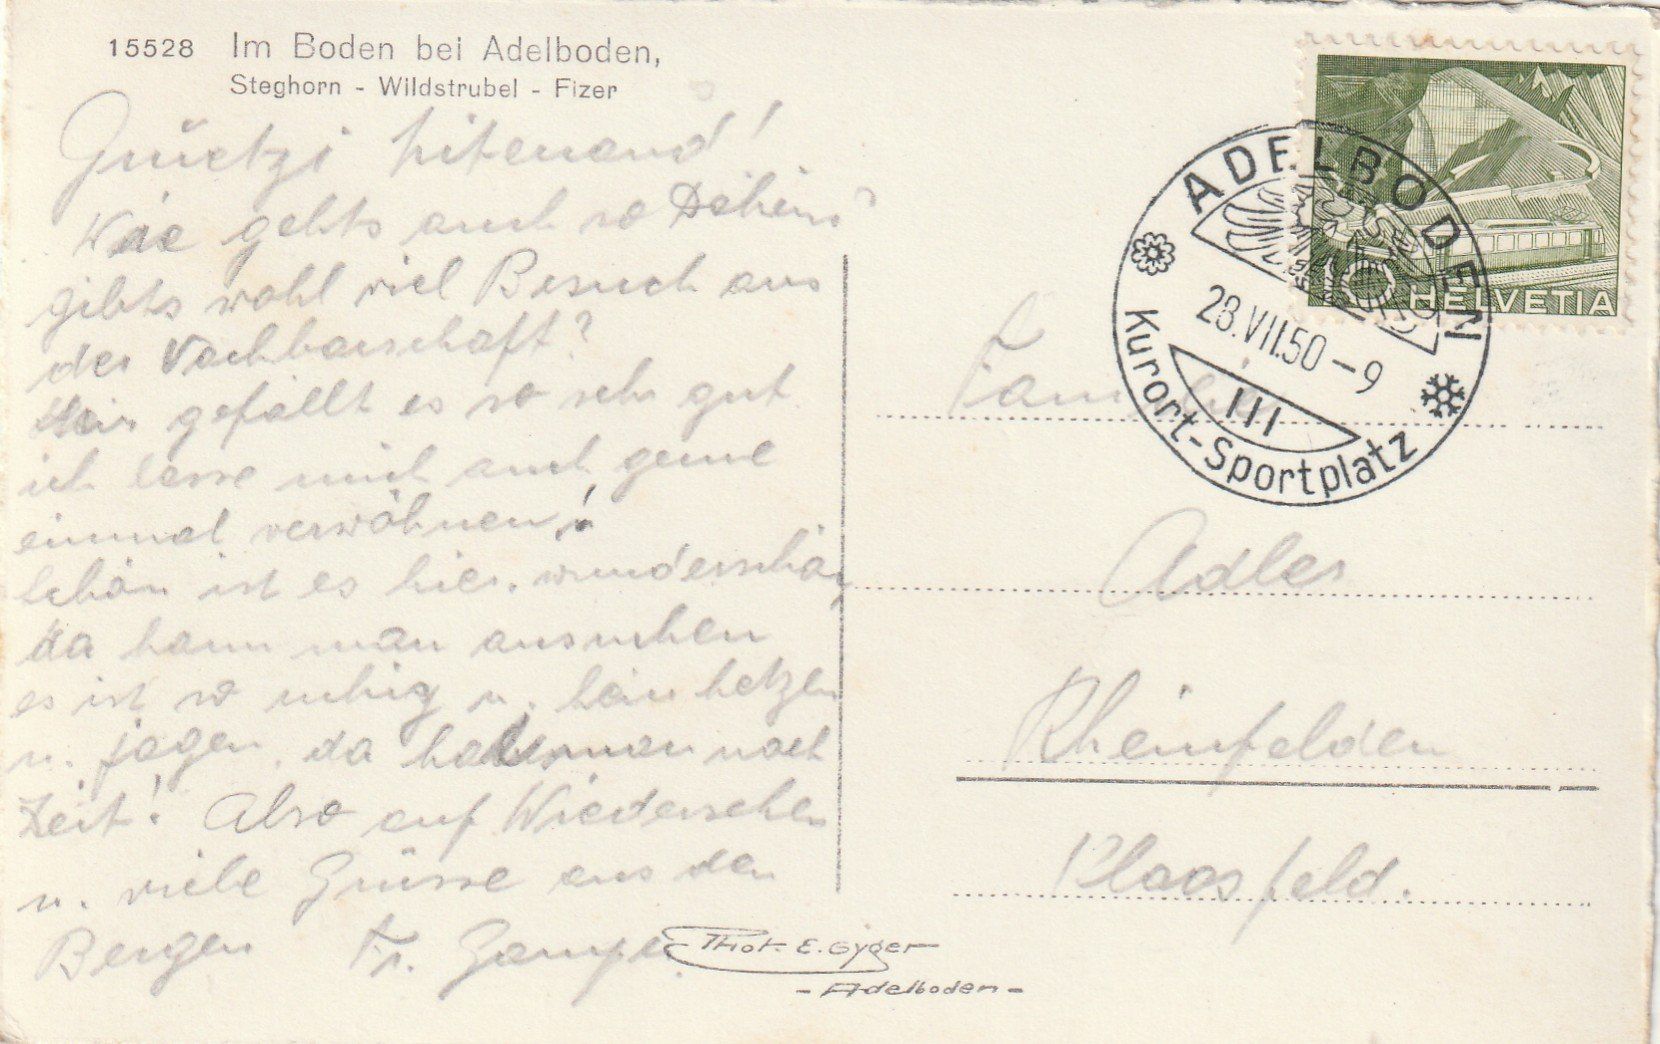 15528 Im Boden bei Adelboden,
Steghorn - Wildstrubel - Fizer
Grüetzi mitenand!
Wie gehts auch so Daheim?
gibts wohl viel Besuch aus
der Nachbarschaft?
Mir gefällt es so sehr gut
ich lasse mich auch gerne
einmal verwöhnen!
Schön ist es hier, wunderschön
da kann man ausruhen
es ist so ruhig u. kein hetzen
u. jagen, da hat man noch
Zeit! Also auf Wiedersehen
u. viele Grüsse aus den
Bergen Fr.
Phot. E. Gyger
- Adelboden -
HELVETIA
10
ADELBODEN
28.VII.50-9
III
Kurort-Sportplatz
Familie
Adler
Rheinfelden